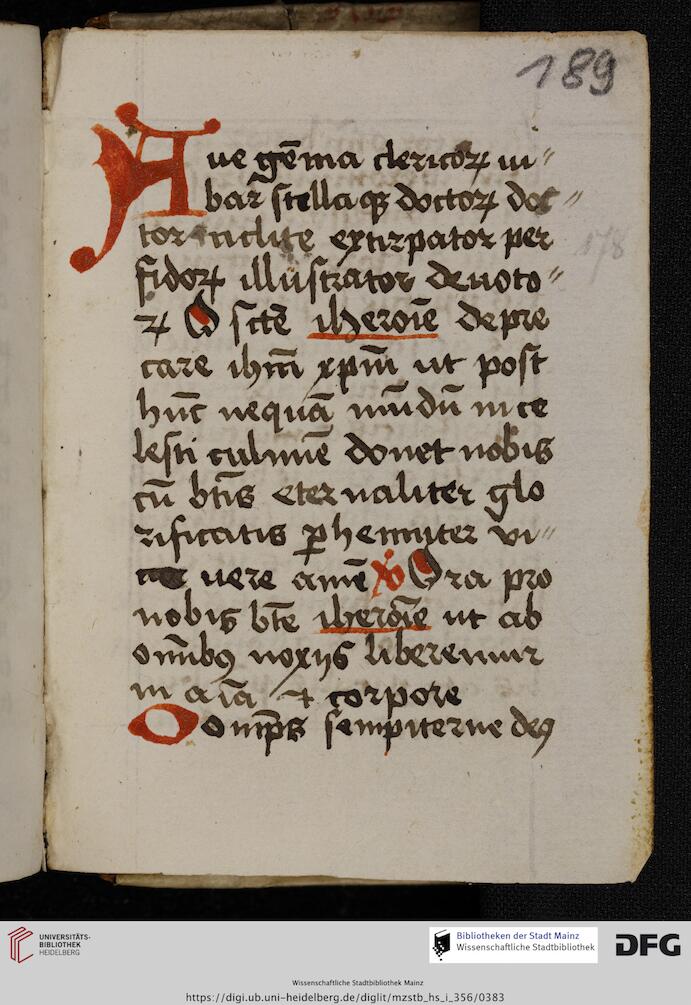 189
Aue gēma clericoꝝ iu〃
bar̄ stellaqꝫ doctoꝝ doc〃
tor inclite extirpator per
178
fidoꝝ illustrator deuoto〃
ꝝ O sctē iheroīe depre
care ihm̄ xpm̄ ut post
hūc nequā mūdū in ce
lesti culmīe donet nobis
cū btīs eternaliter glo
rificatis ꝑhenniter vi〃
uere amē ℣ Ora pro
nobis btē iheroīe ut ab
omībꝰ noxijs liberemur
in aīa ⁊ corpore
O omp̄s sempiterne deꝰ
UNIVERSITÄTS-
BIBLIOTHEK
HEIDELBERG
Bibliotheken der Stadt Mainz
Wissenschaftliche Stadtbibliothek
DFG
Wissenschaftliche Stadtbibliothek Mainz
https://digi.ub.uni-heidelberg.de/diglit/mzstb_hs_i_356/0383